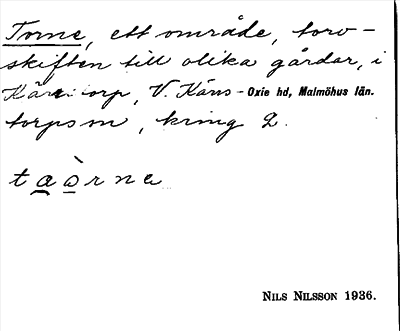 Torne, ett område, torv-
skiften till olika gårdar, i
V. Käns- Oxie hd, Malmöhus län.
torps sn, kring 2.
Nils Nilsson 1936.